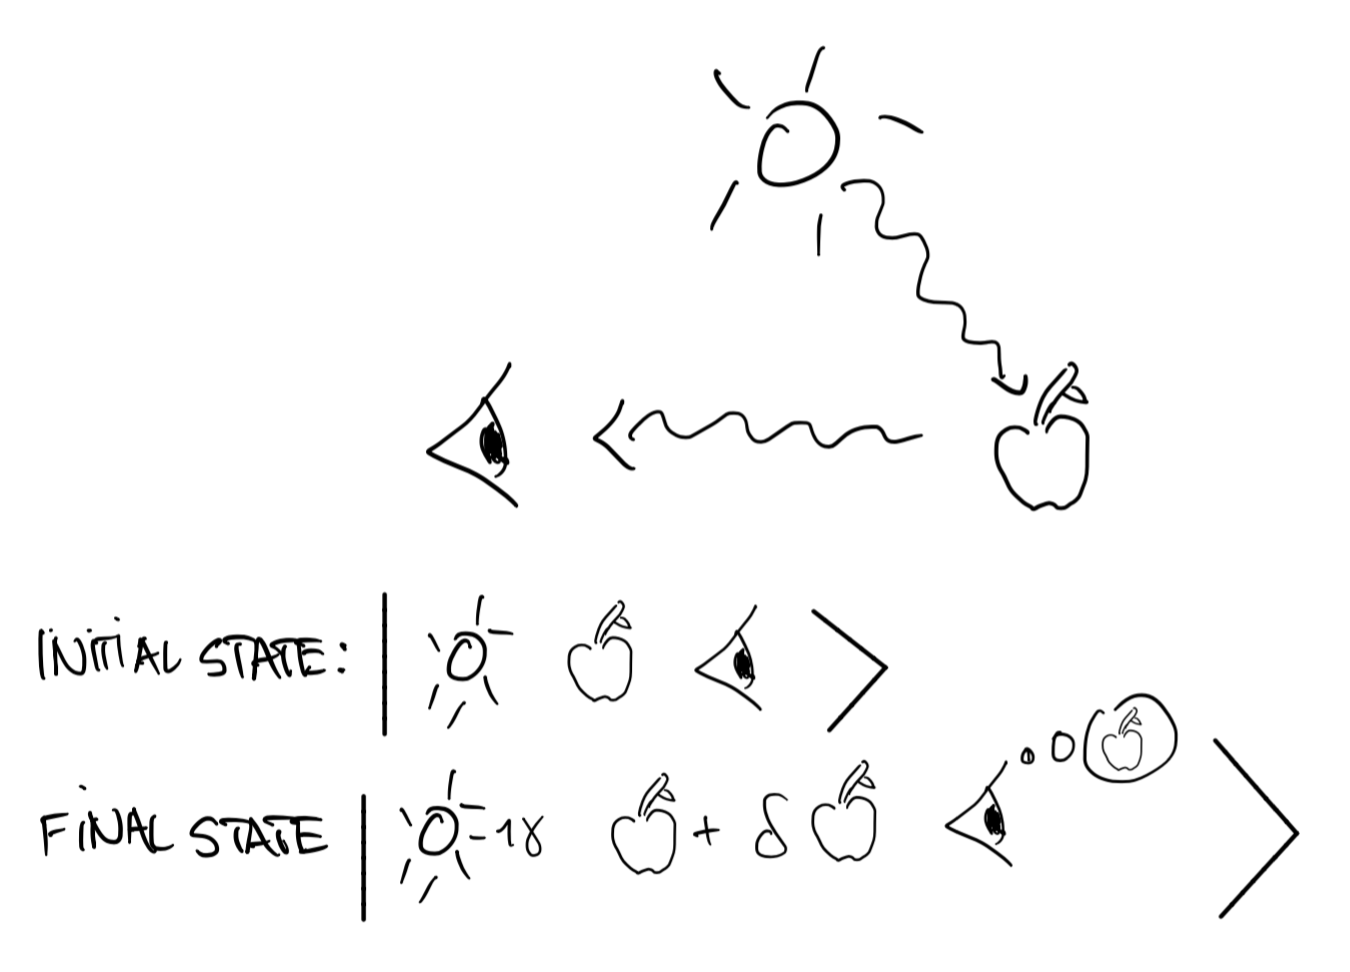 INITIAL STATE:
FINAL STATE - 1γ + δ